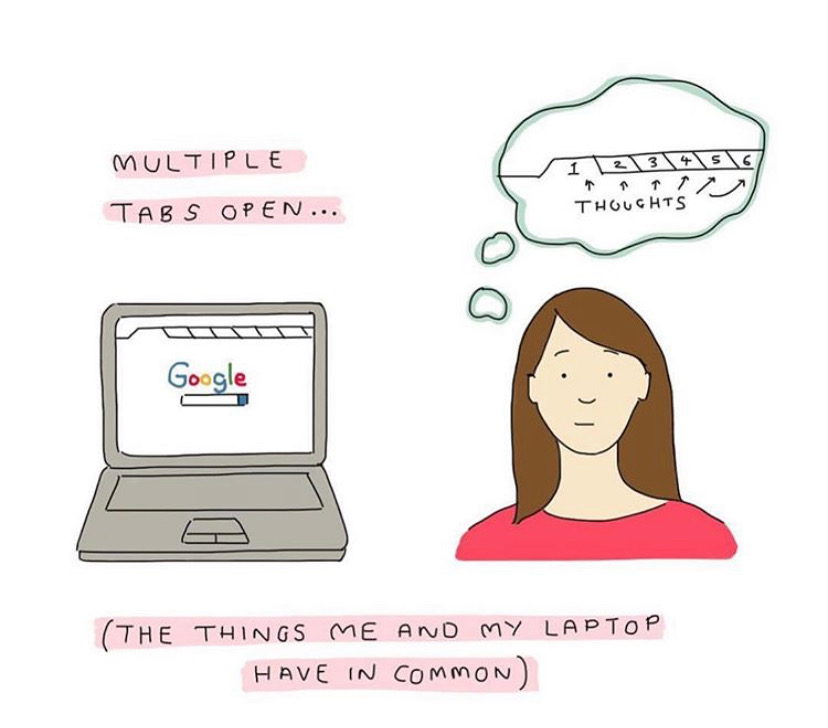 MULTIPLE
TABS OPEN...
1 2 3 4 5 6
THOUGHTS
Google
(THE THINGS ME AND MY LAPTOP
HAVE IN COMMON)